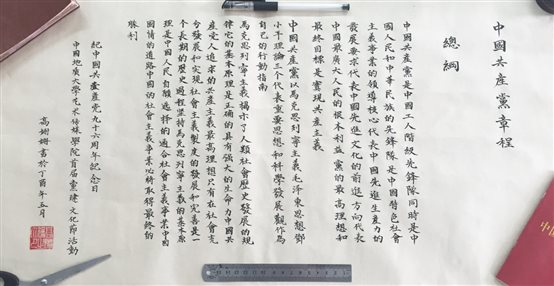 中國共產黨章程
總綱
中國共產黨是中國工人階級先鋒隊同時是中
國人民和中華民族的先鋒隊是中國特色社會
主義事業的領導核心代表中國先進生產力的
發展要求代表中國先進文化的前進方向代表
中國最廣大人民的根本利益黨的最高理想和
最終目標是實現共產主義
中國共產黨以馬克思列寧主義毛澤東思想鄧
小平理論三個代表重要思想和科學發展觀作為
自己的行動指南
馬克思列寧主義揭示了人類社會歷史發展的規
律它的基本原理是正確的具有強大的生命力中國共
產黨人追求的共產主義最高理想只有在社會充
分發展和實現社會主義制度的發展和完善是一
個長期的歷史過程堅持馬克思列寧主義的基本原
理走中國人民自願選擇的適合
國情的道路中國的社會主義事業必將取得最終的
勝利
紀中國共產產党九十六周年紀念日
中國地質大學藝术传媒學院首届黨建文化節活動
高樹姗書於丁酉年五月
中国